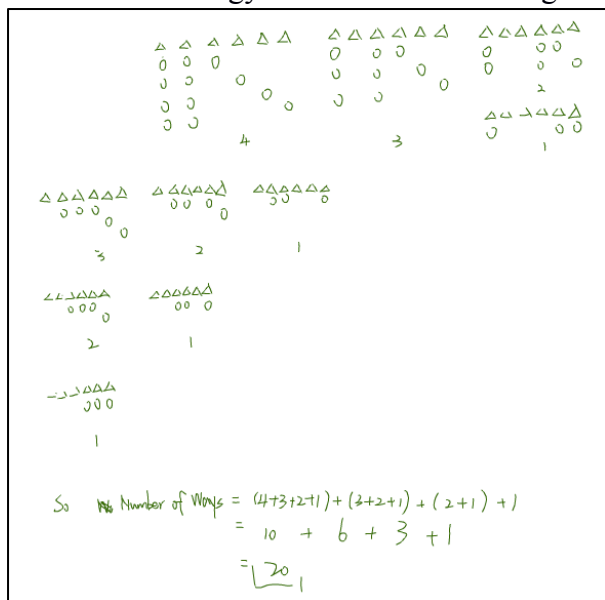 4 3 2
1
3 2 1
2 1
1
So Number of Ways = (4+3+2+1) + (3+2+1) + (2+1) + 1
= 10 + 6 + 3 + 1
= 20